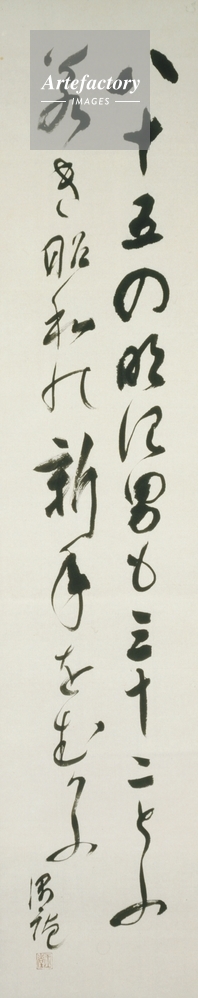 Artefactory
IMAGES
八十五の明治男も三十二とふ
若き昭和の新年をむかふ